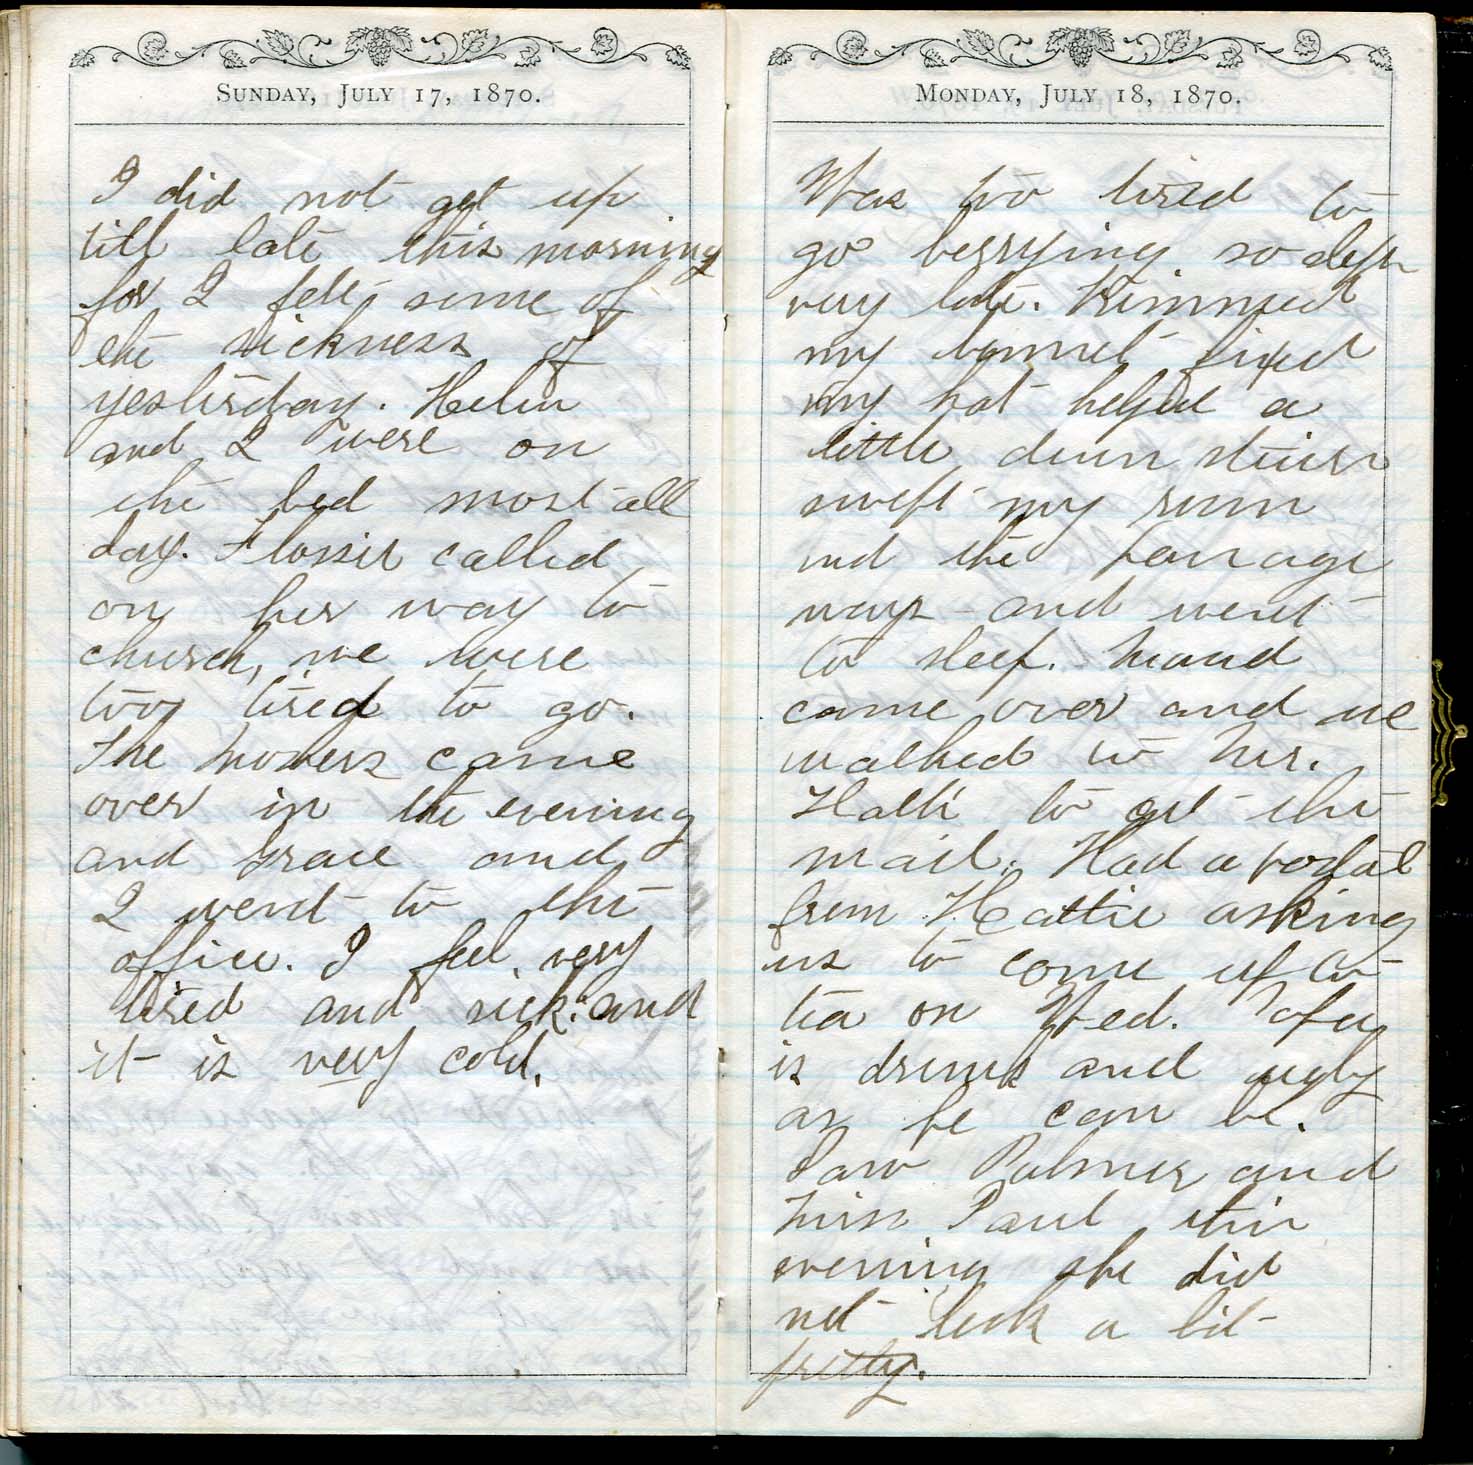 SUNDAY, JULY 17, 1870.
I did not get up
till late this morning
for I felt some of
the sickness of
yesterday. Helen
and I were on
the bed most all
day. Flossie called
on her way to
church, we were
too tired to go.
The came
over in the evening
and Grace and
I went to the
office. I feel very
tired and sick and
it is very cold.
MONDAY, JULY 18, 1870.
Was too tired to
go berrying so slept
very late. Trimmed
my bonnet fixed
my hat helped a
little down stairs
swept my room
and the passage
ways and went
to sleep. Maud
came over and we
walked to Mrs.
to get the
mail. Had a postal
from Hattie asking
us to come up to
tea on Wed.
is and ugly
as he can be.
Saw Palmer and
Miss Paul this
evening she did
not look a bit
pretty.